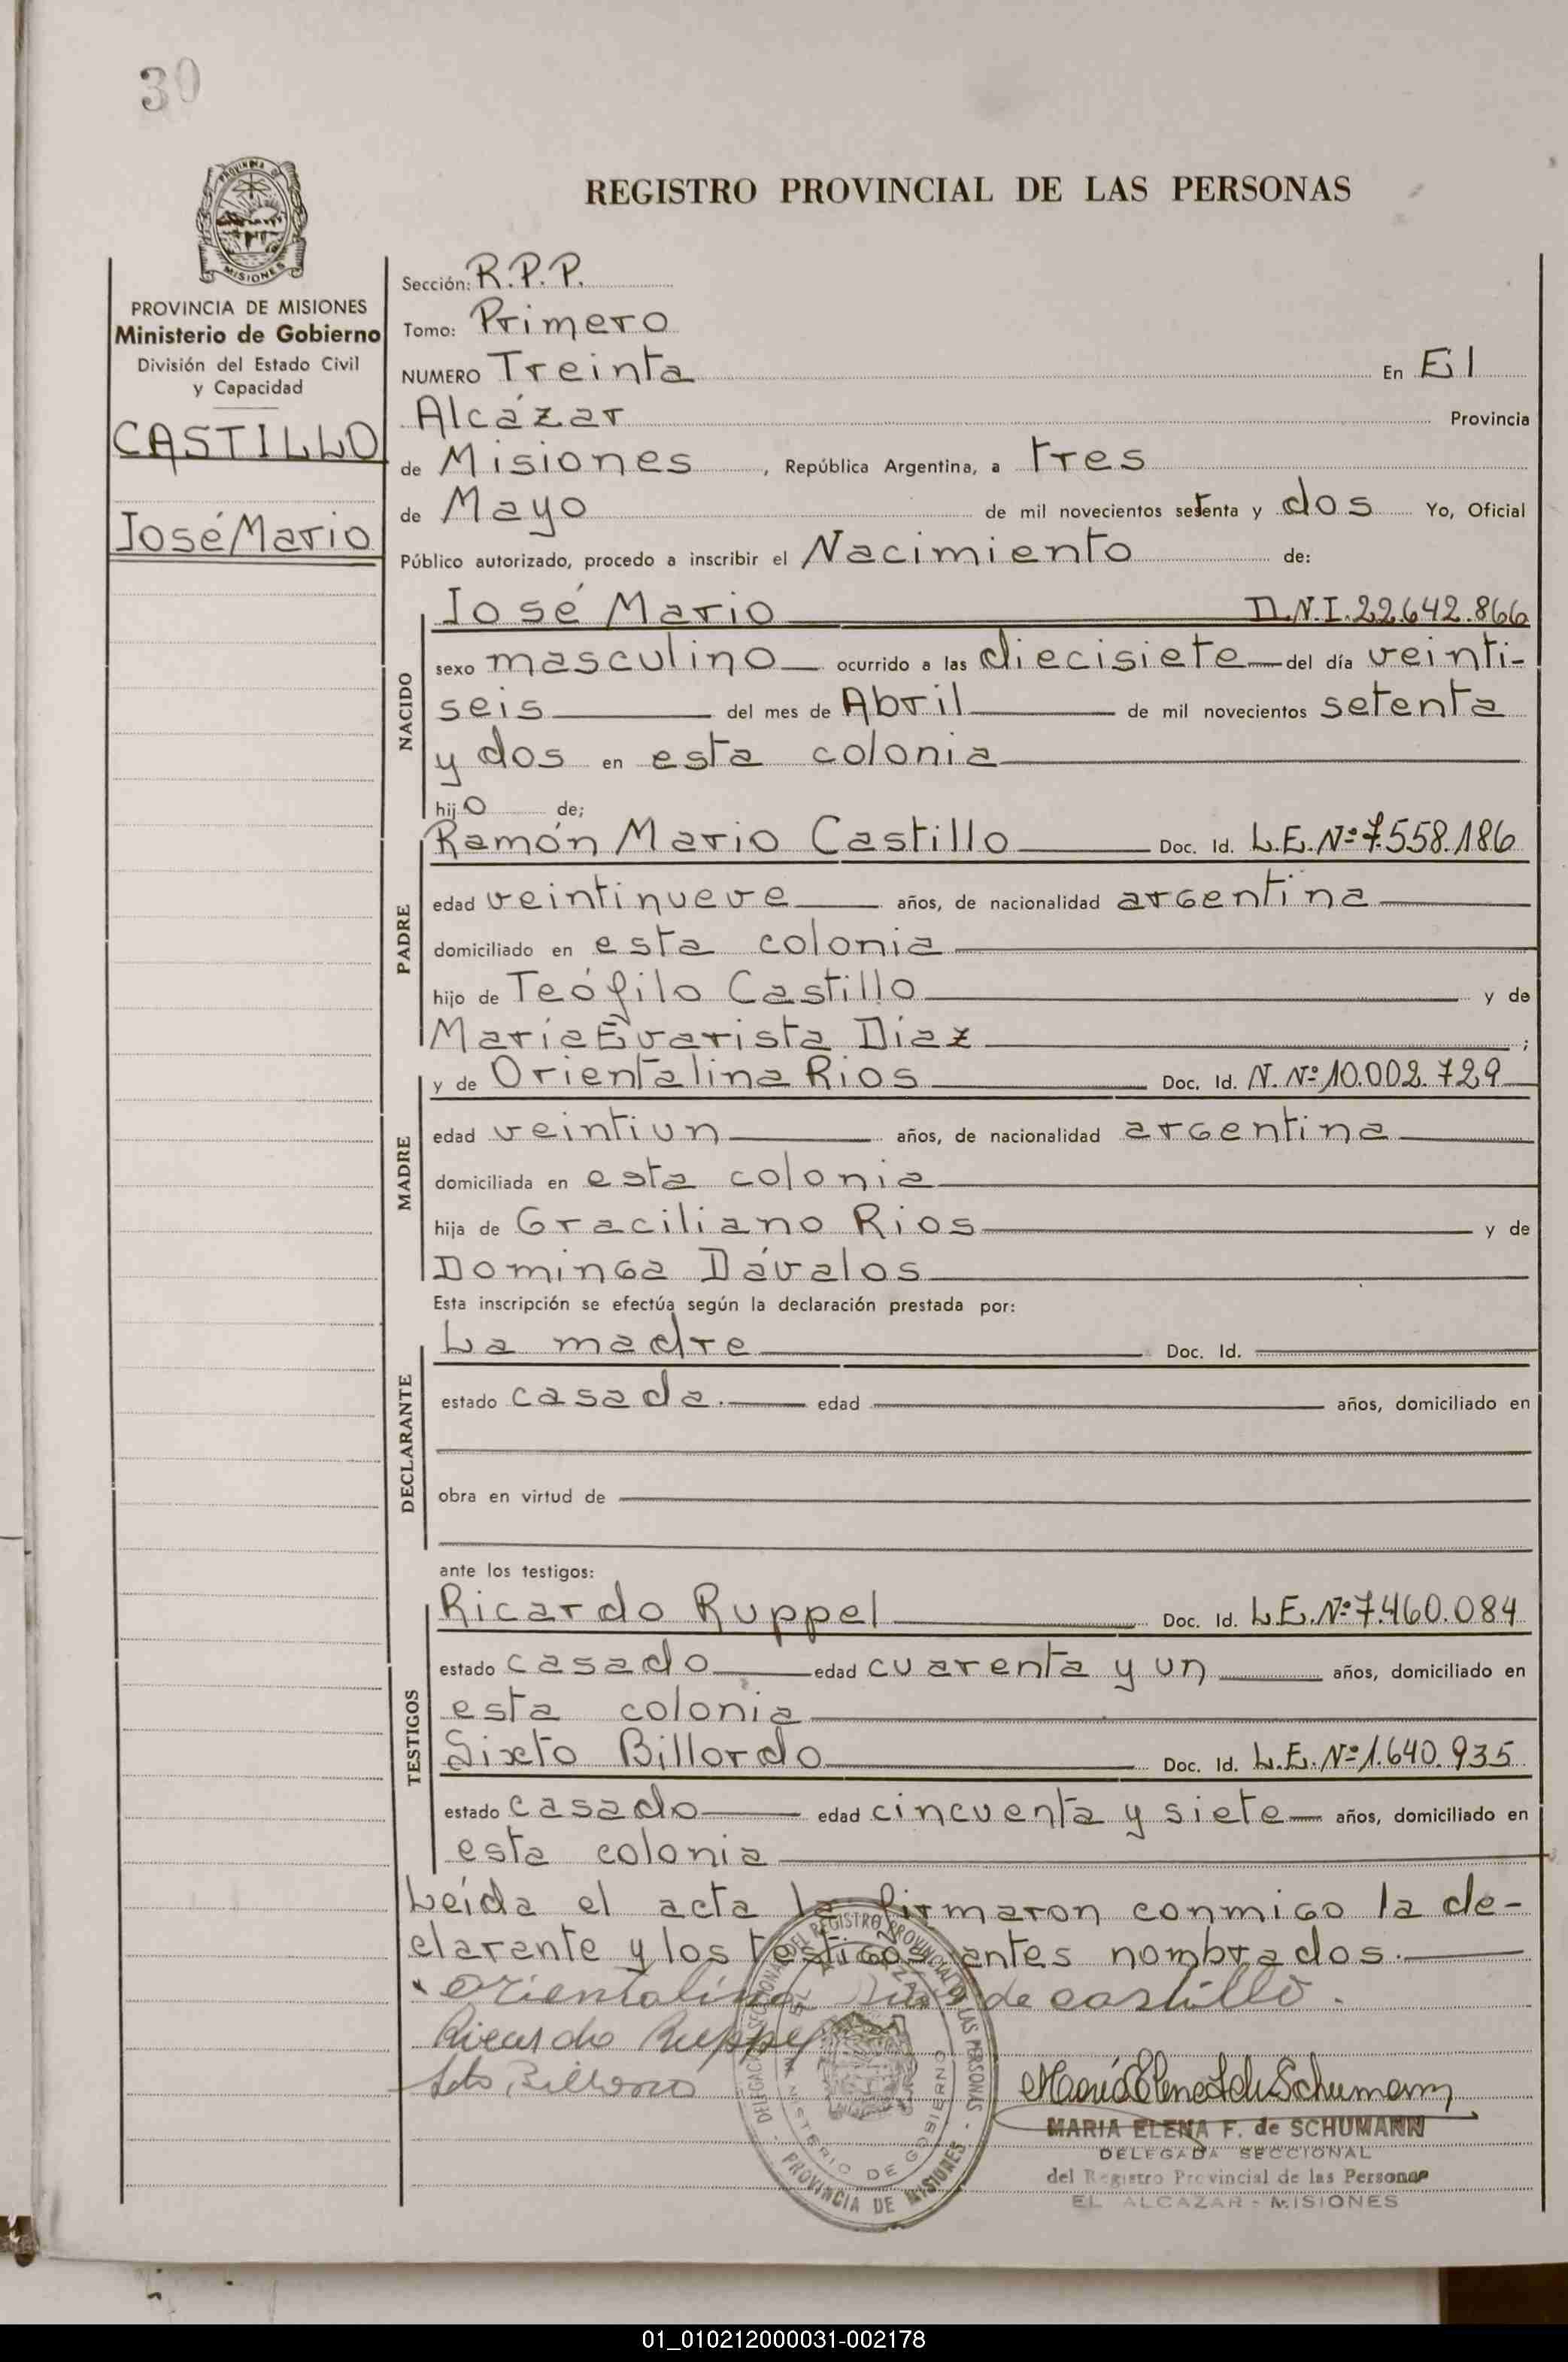 30
PROVINCIA DE
MISIONES
REGISTRO PROVINCIAL DE LAS PERSONAS
PROVINCIA DE MISIONES
Ministerio de Gobierno
División del Estado Civil
y Capacidad
CASTILLO
José Mario
Sección: R.P.P.
Tomo: Primero
NUMERO Treinta En El
Alcázar Provincia
de Misiones, República Argentina, a tres
de Mayo de mil novecientos setenta y dos Yo, Oficial
Público autorizado, procedo a inscribir el Nacimiento de:
NACIDO
José Mario D.N.I. 22.642.866
sexo masculino ocurrido a las diecisiete del día veinti-
seis del mes de Abril de mil novecientos setenta
y dos en esta colonia
hijo de;
PADRE
Ramón Mario Castillo Doc. Id. L.E. Nº 7.558.186
edad veintinueve años, de nacionalidad argentina
domiciliado en esta colonia
hijo de Teófilo Castillo y de
María Evarista Díaz ;
MADRE
y de Orientalina Rios Doc. Id. N. Nº 10.002.729
edad veintiun años, de nacionalidad argentina
domiciliada en esta colonia
hija de Graciliano Rios y de
Dominga Dávalos
Esta inscripción se efectúa según la declaración prestada por:
DECLARANTE
La madre Doc. Id.
estado casada. edad años, domiciliado en
obra en virtud de
ante los testigos:
TESTIGOS
Ricardo Ruppel Doc. Id. L.E. Nº 7.460.084
estado casado edad cuarenta y un años, domiciliado en
esta colonia
Sixto Billordo Doc. Id. L.E. Nº 1.640.935
estado casado edad cincuenta y siete años, domiciliado en
esta colonia
Leída el acta la firmaron conmigo la de-
clarante y los testigos antes nombrados.
orientalina de castillo.
Ricardo Ruppel
DEL REGISTRO PROVINCIAL DE LAS PERSONAS
MINISTERIO DE GOBIERNO
PROVINCIA DE MISIONES
María Elena F. de Schumann
MARIA ELENA F. de SCHUMANN
DELEGADA SECCIONAL
del Registro Provincial de las Personas
EL ALCAZAR - MISIONES
01_010212000031-002178